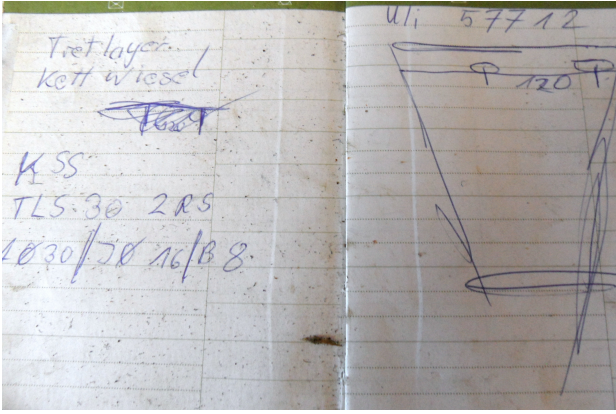 Tretlager
Kettwiesel
KSS
TLS-30 2RS
AØ30/JØ 16/B 8
Uli 57712
120